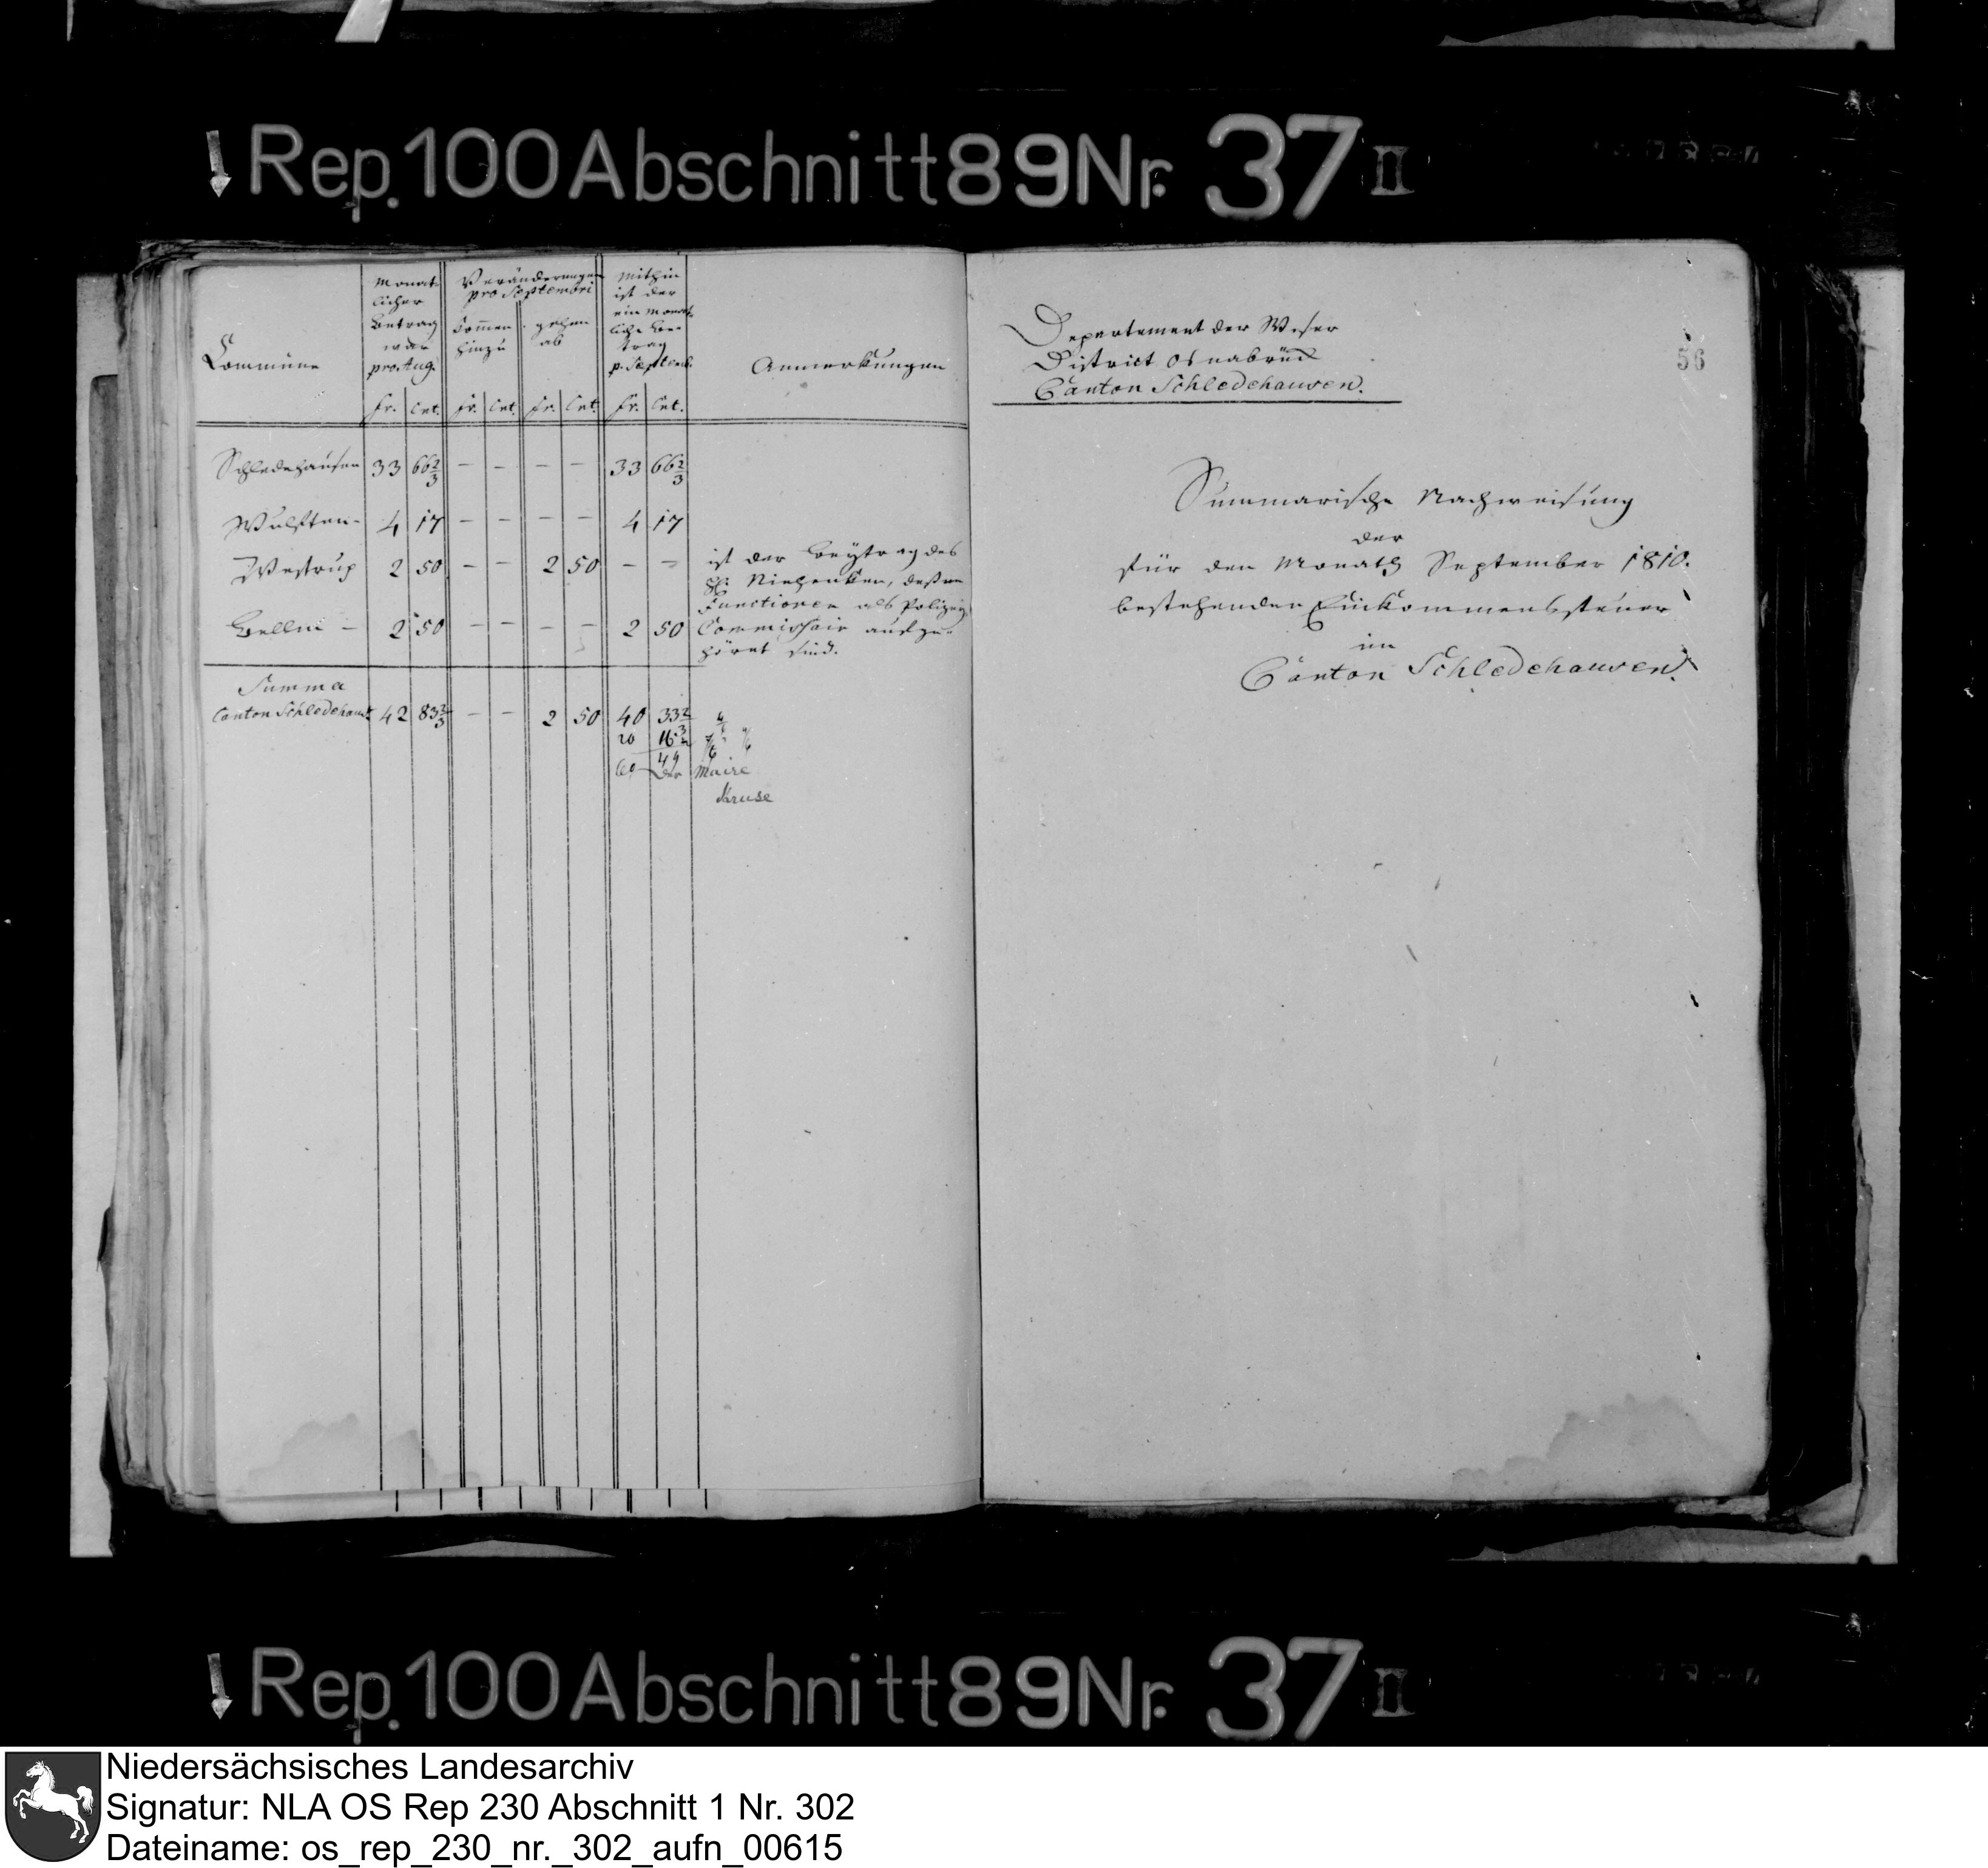 Rep. 100 Abschnitt 89 Nr. 37 II
Commüne
Monat-
licher
Betrag
war
pro Aug.
Veränderungen
pro Septembri
kom̄en
hinzu
gehen
ab
Mithin
ist der
ein monat-
liche Be-
trag
p. Septemb.
Anmerkungen
fr. Cet. fr. Cet. fr. Cet. fr. Cet.
Schledehausen 33 66 2/3 – – – – 33 66 2/3
Wulften – 4 17 – – – – 4 17
Westrup 2 50 – – 2 50 – –
ist der Beytrag des
H. Niehenken, deßen
Functionen als Polizey
Commissair aufge-
höret sind.
Bellm – 2 50 – – – – 2 50
Summa
Canton Schledehaus. 42 83 2/3 – – 2 50 40 33 2/3
20 16
60 49
Der Maire
Kruse
Departement der Weser
District Osnabrück
Canton Schledehausen.
56
Summarische Nachweisung
der
für den Monath September 1810.
bestehenden Einkommenssteuer
im
Canton Schledehausen.
Rep. 100 Abschnitt 89 Nr. 37 II
Niedersächsisches Landesarchiv
Signatur: NLA OS Rep 230 Abschnitt 1 Nr. 302
Dateiname: os_rep_230_nr._302_aufn_00615